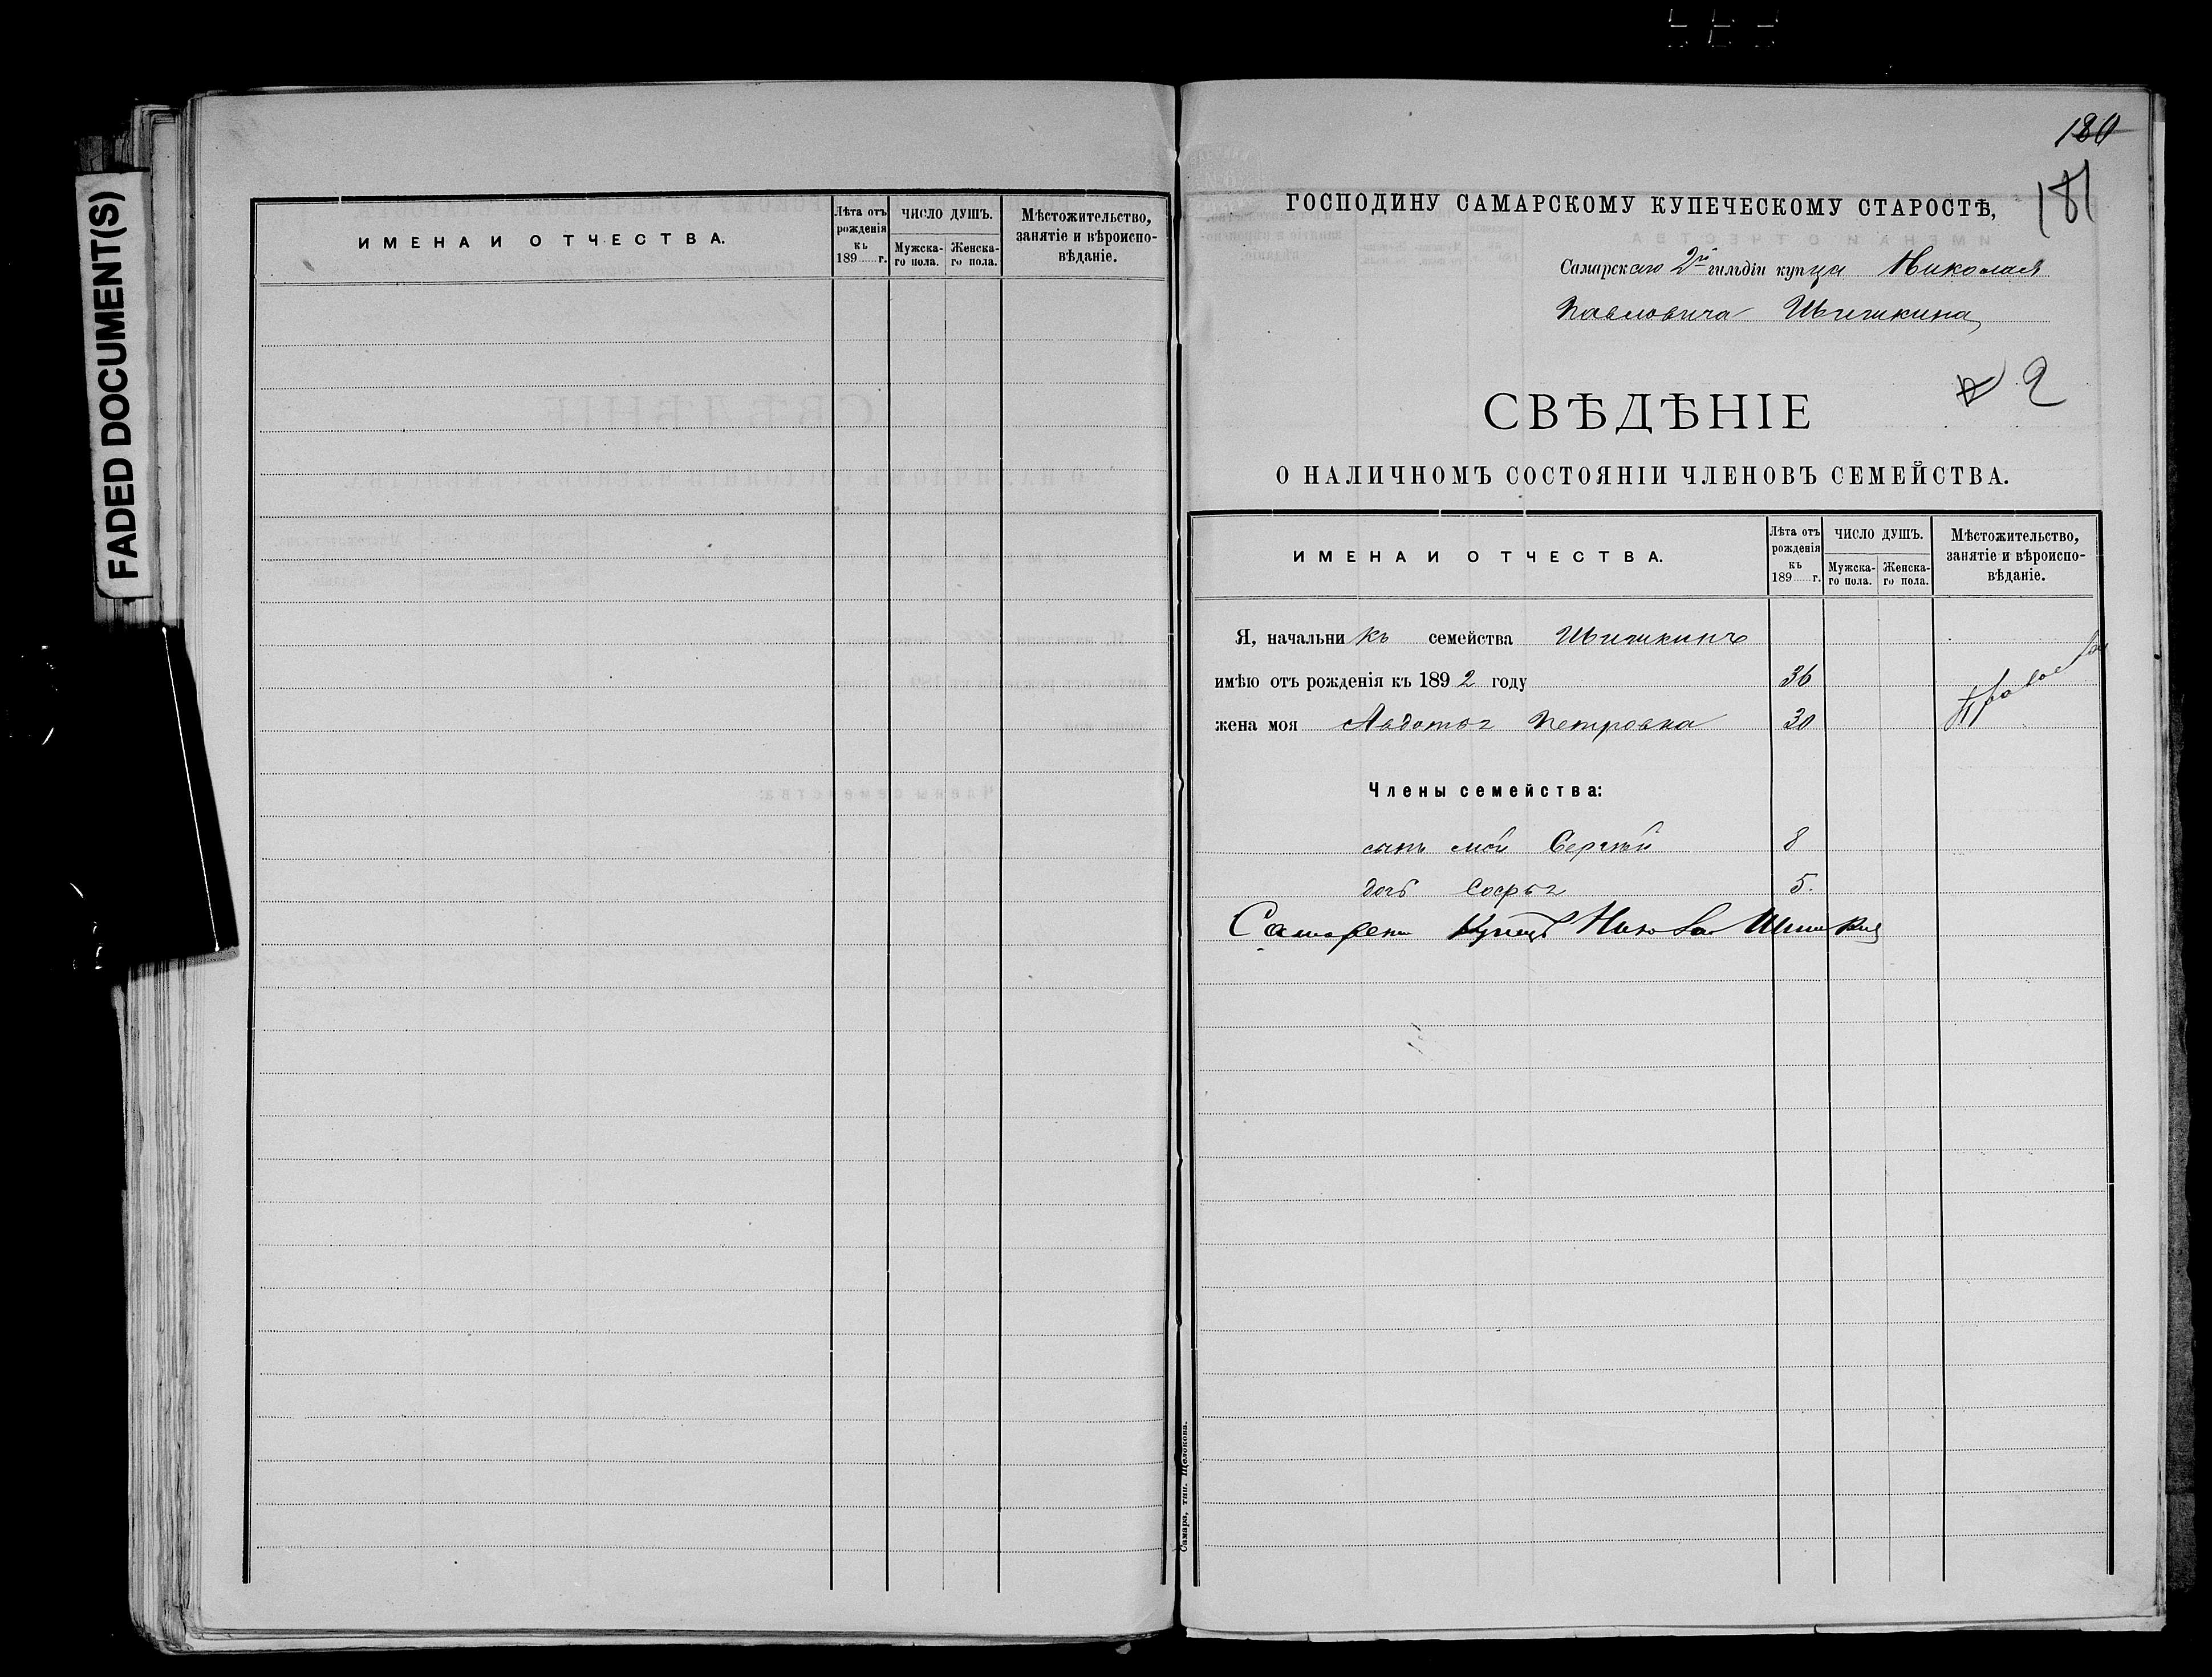 FADED DOCUMENT(S)
ИМЕНА И ОТЧЕСТВА.
Лѣта отъ рожденія къ 189 г.
ЧИСЛО ДУШЪ.
Мужска-го пола.
Женска-го пола.
Мѣстожительство, занятіе и вѣроиспо-вѣданіе.
180
181
ГОСПОДИНУ САМАРСКОМУ КУПЕЧЕСКОМУ СТАРОСТѢ,
Самарскаго 2й гильдіи купца Николая
Павловича Шишкина
2
СВѢДѢНІЕ
О НАЛИЧНОМЪ СОСТОЯНІИ ЧЛЕНОВЪ СЕМЕЙСТВА.
ИМЕНА И ОТЧЕСТВА.
Лѣта отъ рожденія къ 189 г.
ЧИСЛО ДУШЪ.
Мужска-го пола.
Женска-го пола.
Мѣстожительство, занятіе и вѣроиспо-вѣданіе.
Я, начальникъ семейства Шишкинъ
имѣю отъ рожденія къ 1892 году 36
жена моя Авдотья Петровна 30
Члены семейства:
сынъ мой Сергѣй 8
дочь Софья 5.
Купецъ Шишкин
Самара, тип. Щелокова.